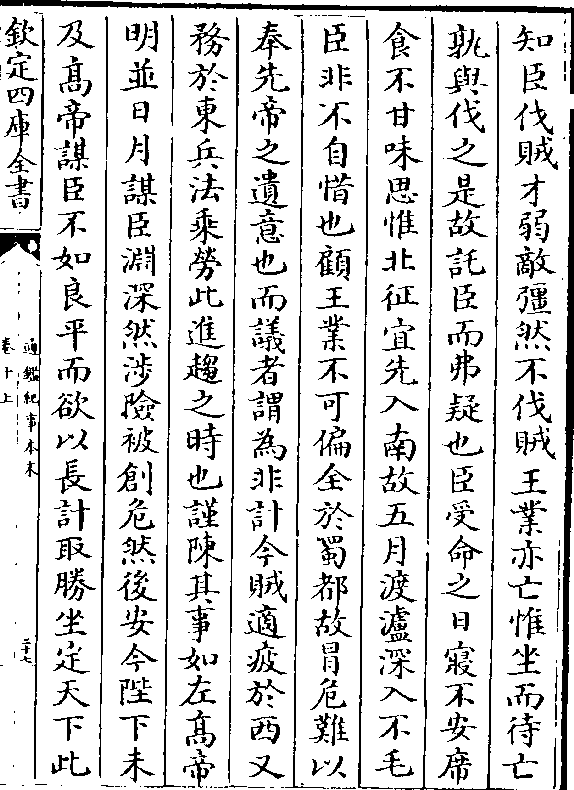 知臣伐賊才弱敵彊然不伐賊王業亦亡惟坐而待亡
孰與伐之是故託臣而弗疑也臣受命之日寢不安席
食不甘味思惟北征宜先入南故五月渡瀘深入不毛
臣非不自惜也顧王業不可偏全於蜀都故冒危難以
奉先帝之遺意也而議者謂為非計今賊適疲於西又
務於東兵法乘勞此進趨之時也謹陳其事如左髙帝
明並日月謀臣淵深然涉險被創危然後安今陛下未
及髙帝謀臣不如良平而欲以長計取勝坐定天下此
欽定四庫全書
通鑑紀事本末
卷十上
二十七